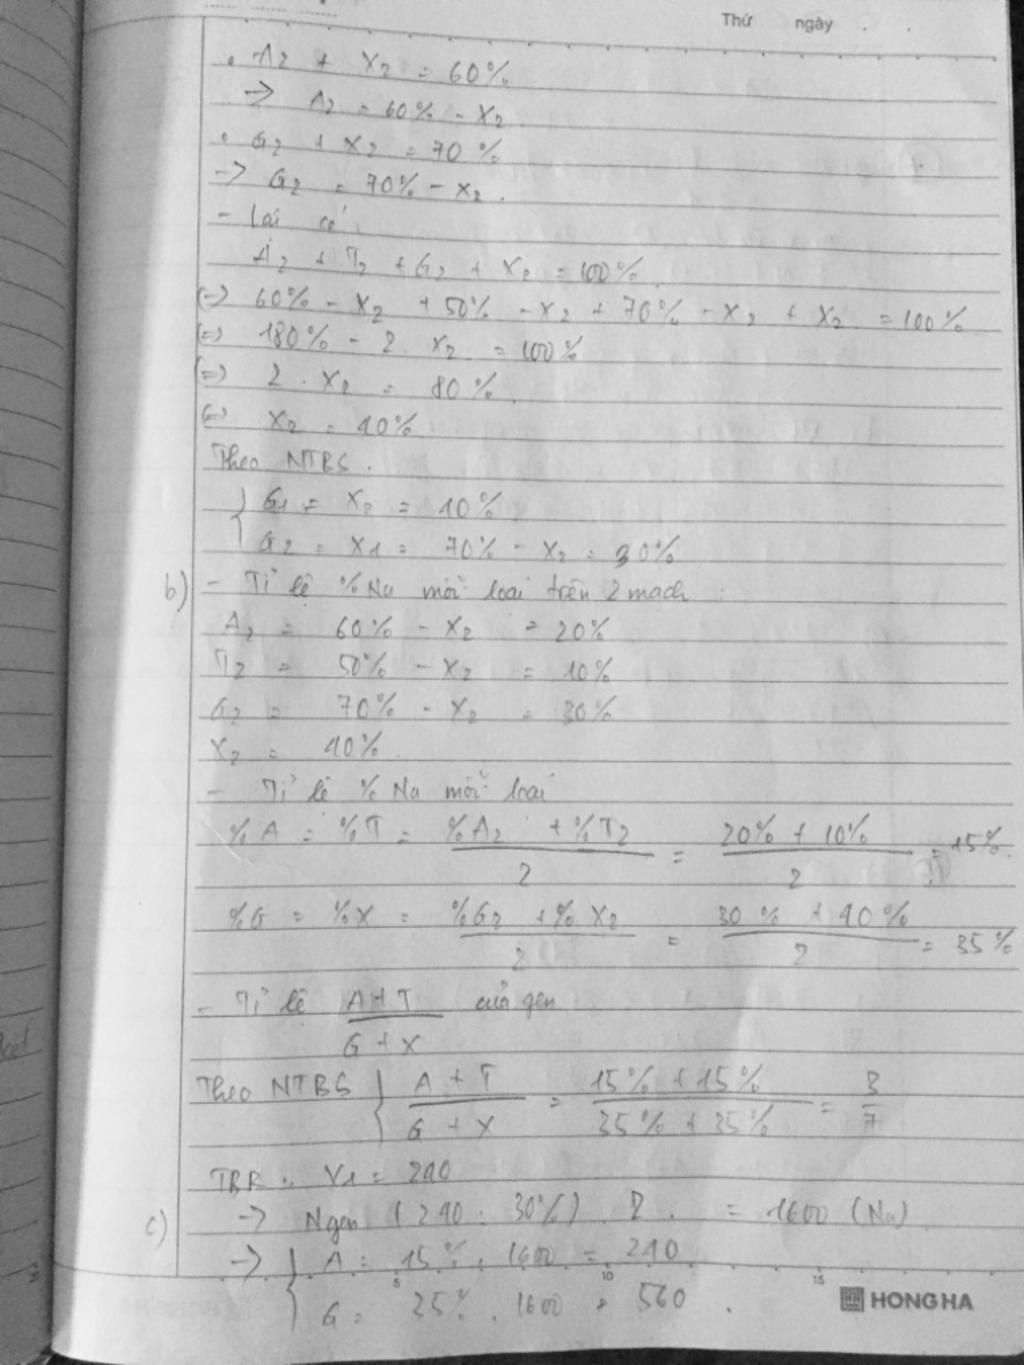 Thứ ngày
. A2 + X2 = 60%
-> A2 = 60% - X2
. G2 + X2 = 70%
-> G2 = 70% - X2.
- Lại có
A2 + T2 + G2 + X2 = 100%
(=) 60% - X2 + 50% - X2 + 70% - X2 + X2 = 100%
(=) 180% - 2. X2 = 100%
(=) 2. X2 = 80%
(=) X2 = 40%
Theo NTBS.
{ G1 = X2 = 40%
G2 = X1 = 70% - X2 = 30%
b) - Tỉ lệ % Nu mỗi loại trên 2 mạch :
A2 = 60% - X2 = 20%
T2 = 50% - X2 = 10%
G2 = 70% - X2 = 30%
X2 = 40%.
- Tỉ lệ % Nu mỗi loại
%A = %T = %A2 + %T2 / 2 = 20% + 10% / 2 = 15%.
%G = %X = %G2 + % X2 / 2 = 30% + 40% / 2 = 35%
- Tỉ lệ A+T / G+X của gen
Theo NTBS { A + T / G + X = 15% + 15% / 35% + 35% = 3 / 7
X1 = 240
c) -> Ngen (240 : 30%) . 2 . = 1600 (Nu)
-> { A = 15% . 1600 = 240
G = 35% . 1600 = 560 .
5 10 15
HONG HA